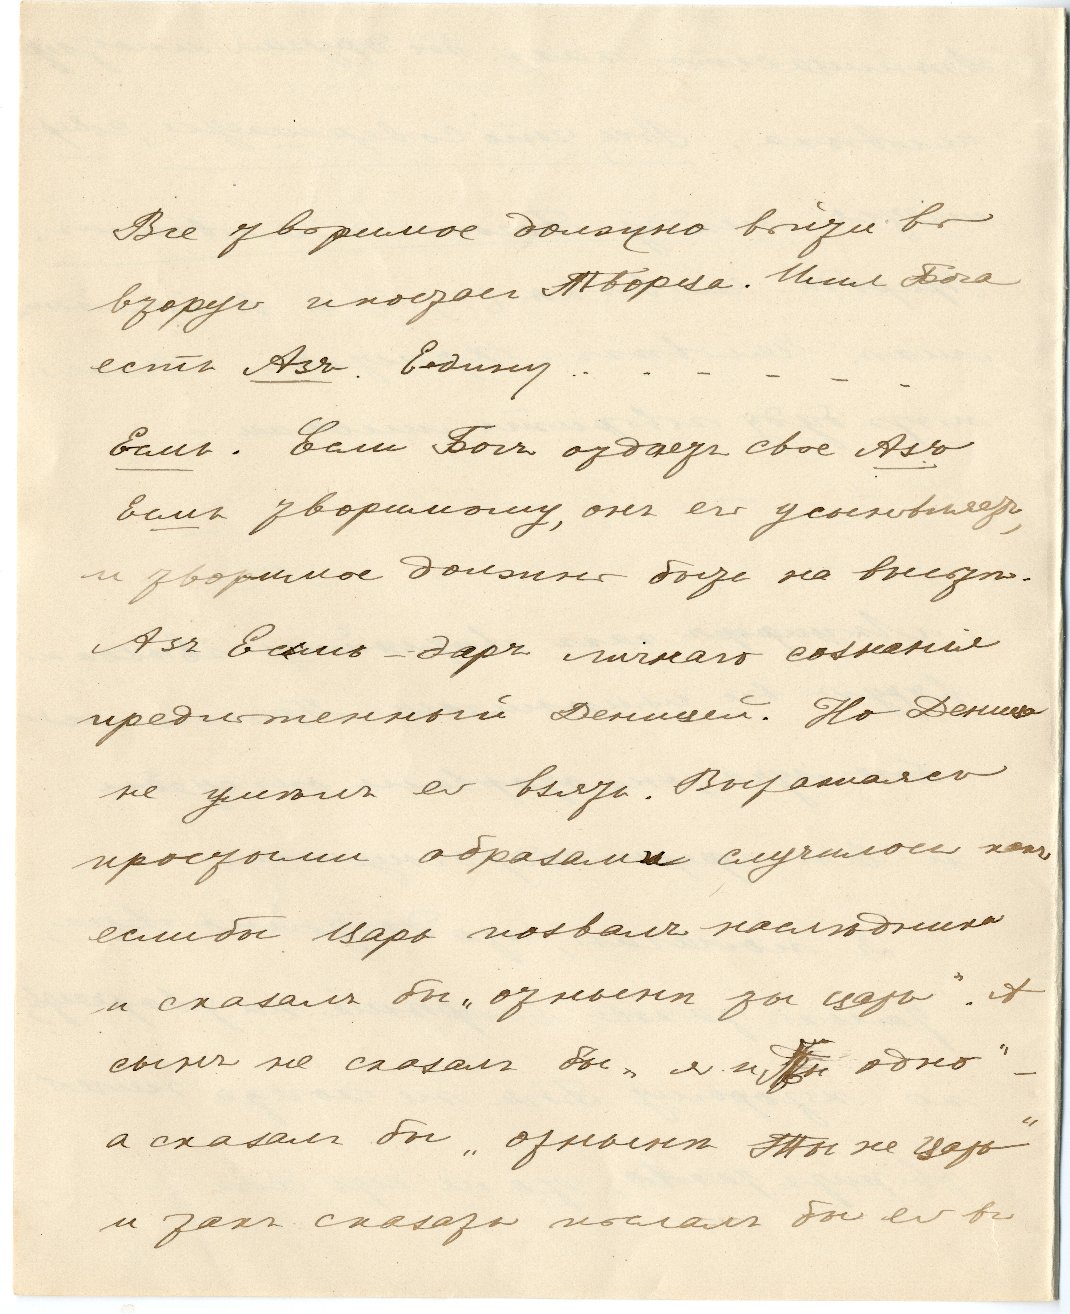 Все творимое должно войти въ
вторую ипостась Творца. Имя Бога
есть Азъ. Едину .. - - - - -
Есмь. Если Богъ отдаетъ свое Азъ
Есмь творимому, онъ его усыновляетъ,
и творимое должно быть на высотѣ.
Азъ Есмь – даръ личнаго сознанія
предложенный Денницей. Но Денница
не умѣлъ его взять. Выражаясь
простыми образами случилось какъ
еслибы Царь позвалъ наслѣдника
и сказалъ бы „отнынѣ ты царь". А
сынъ не сказалъ бы „я и Ты одно" –
а сказалъ бы „отнынѣ Ты не Царь"
и такъ сказать послалъ бы его въ